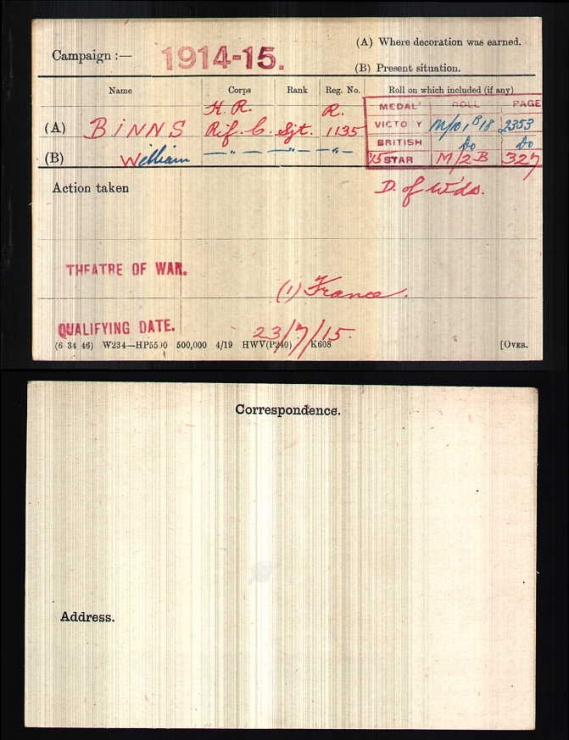 Campaign :— 1914-15. (A) Where decoration was earned.
(B) Present situation.
Name Corps Rank Reg. No. Roll on which included (if any)
K.R. R. MEDAL ROLL PAGE
(A) BINNS Rif. C. Sjt. 1135 VICTO Y 2353
BRITISH Do Do
(B) William — " — — " — — " — '15 STAR M/2 B 327
Action taken D. of Wds.
THEATRE OF WAR. (1) France.
QUALIFYING DATE. 23/7/15.
(6 34 46) W234—HP5500 500,000 4/19 HWV(P240) K608 [OVER.
Correspondence.
Address.